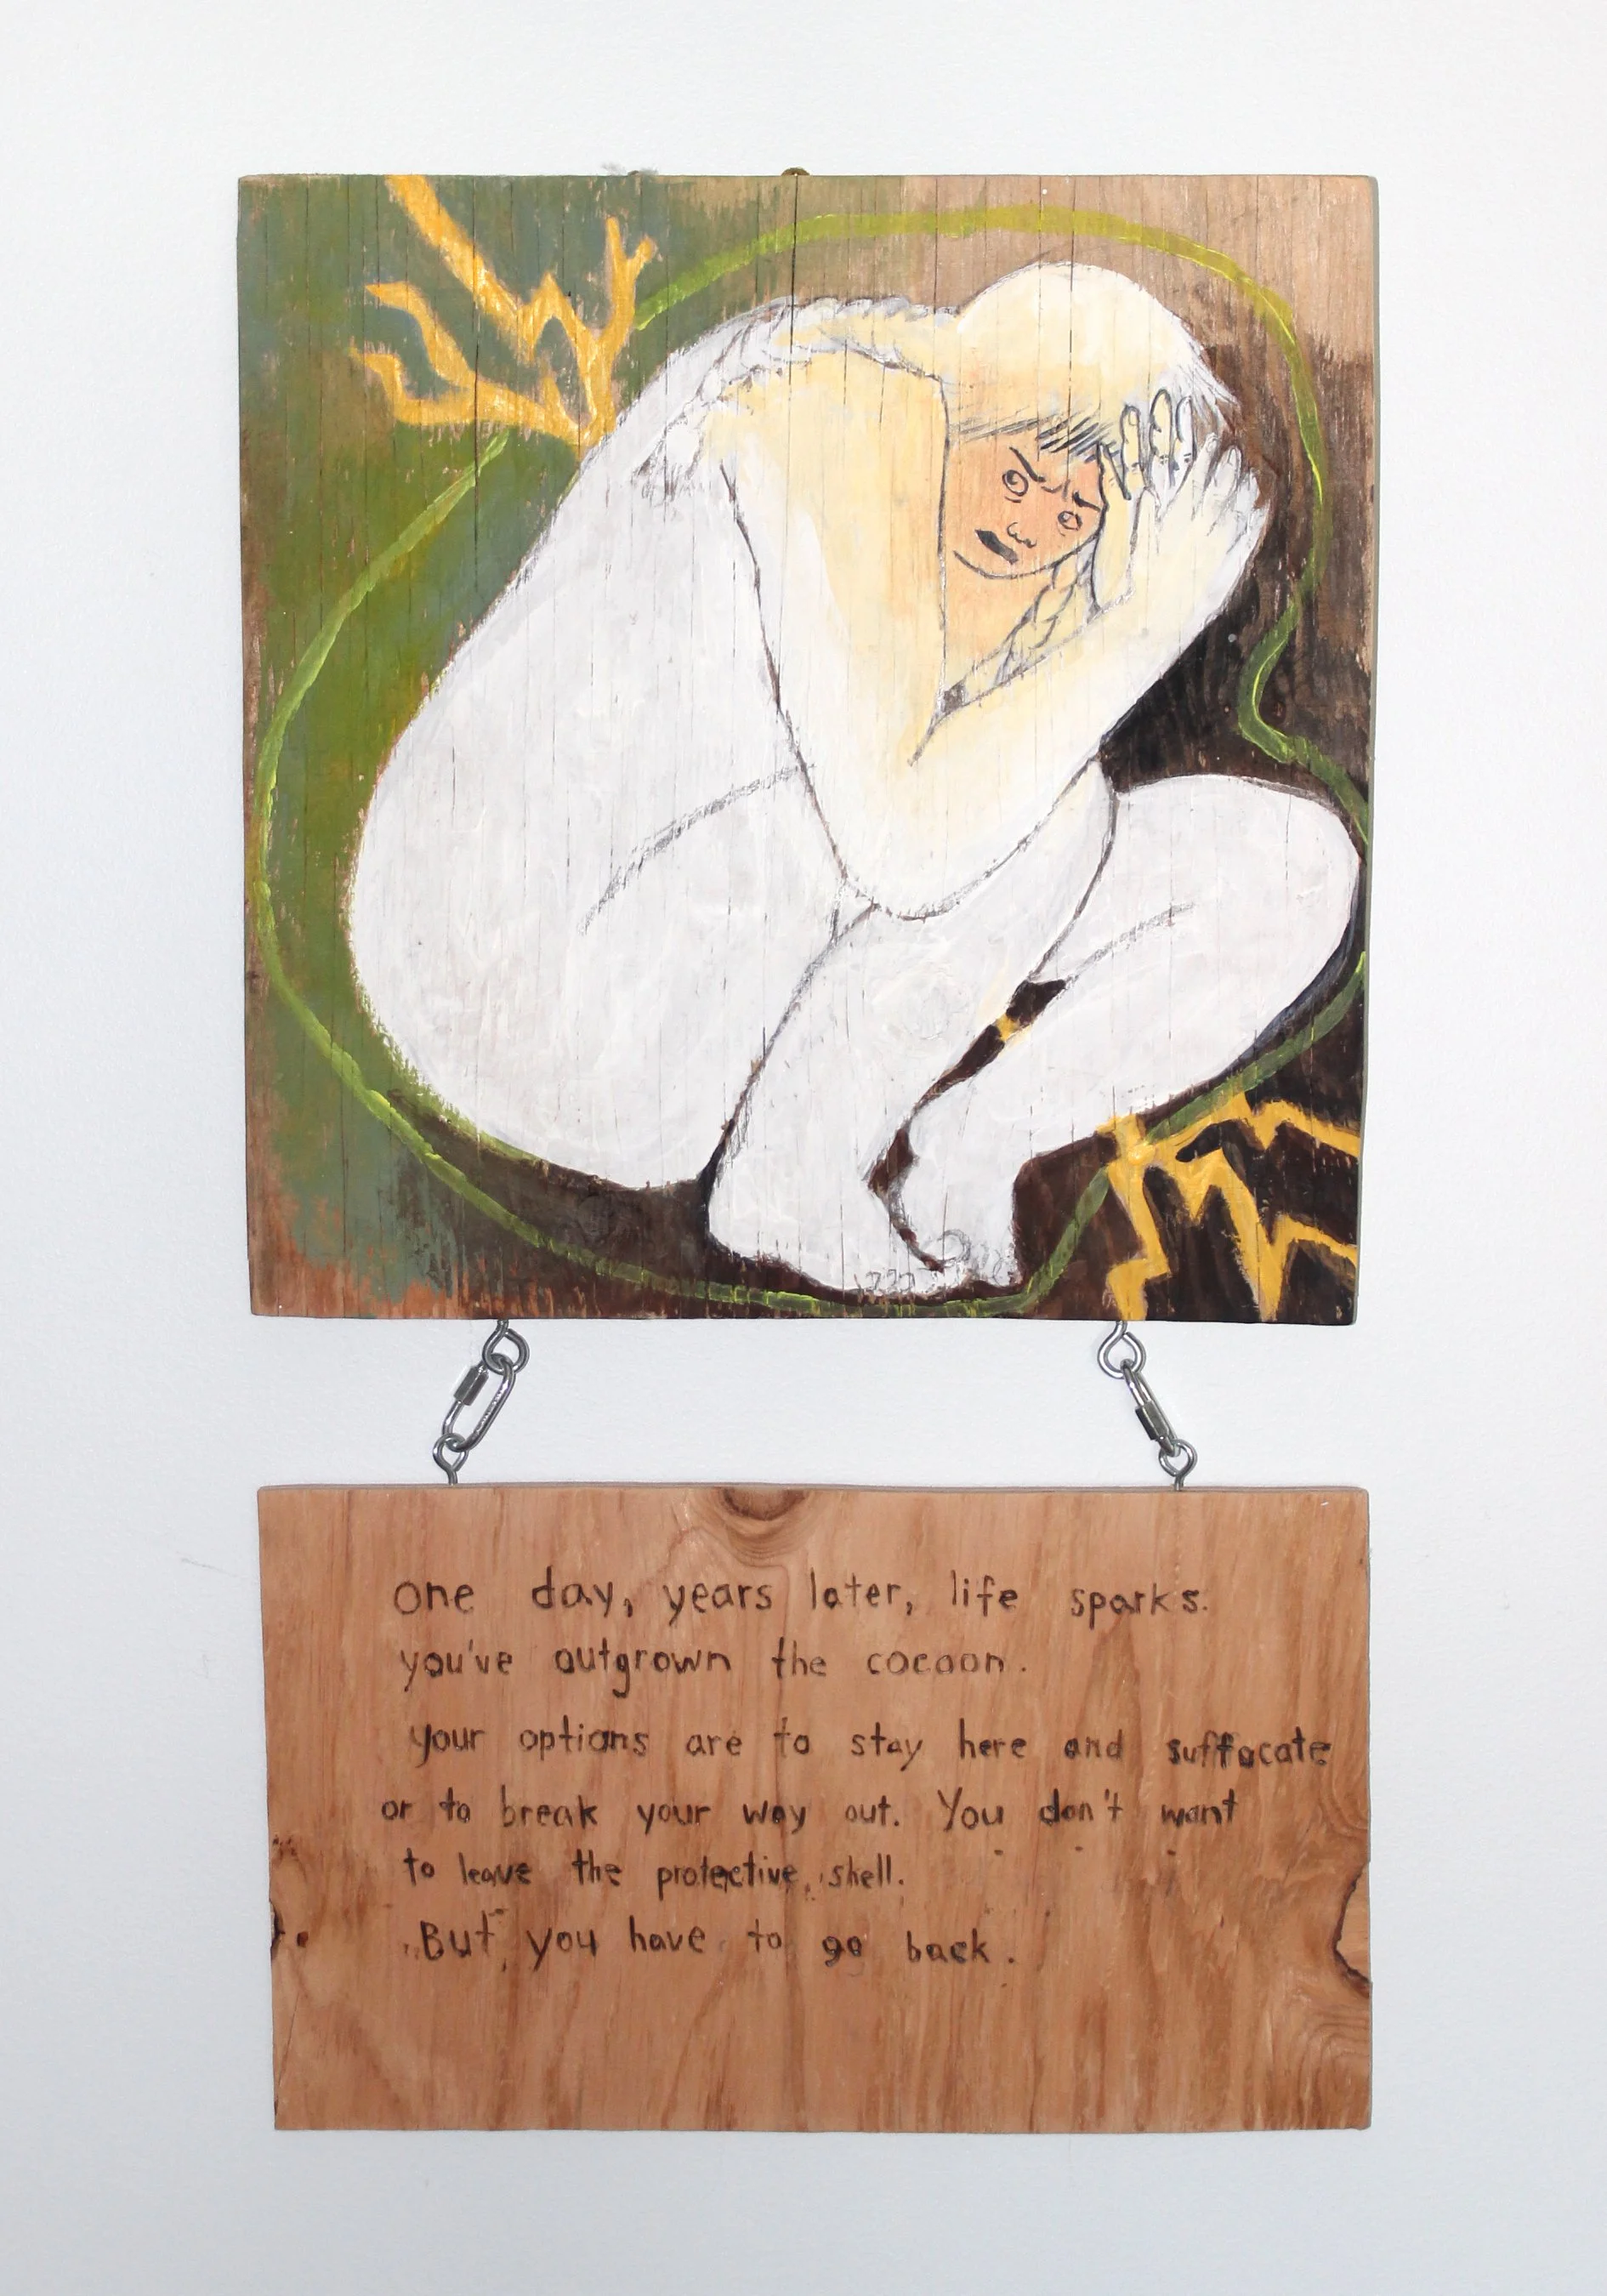 one day, years later, life sparks.
you've outgrown the cocoon.
your options are to stay here and suffocate
or to break your way out. You don't want
to leave the protective shell.
But you have to go back.